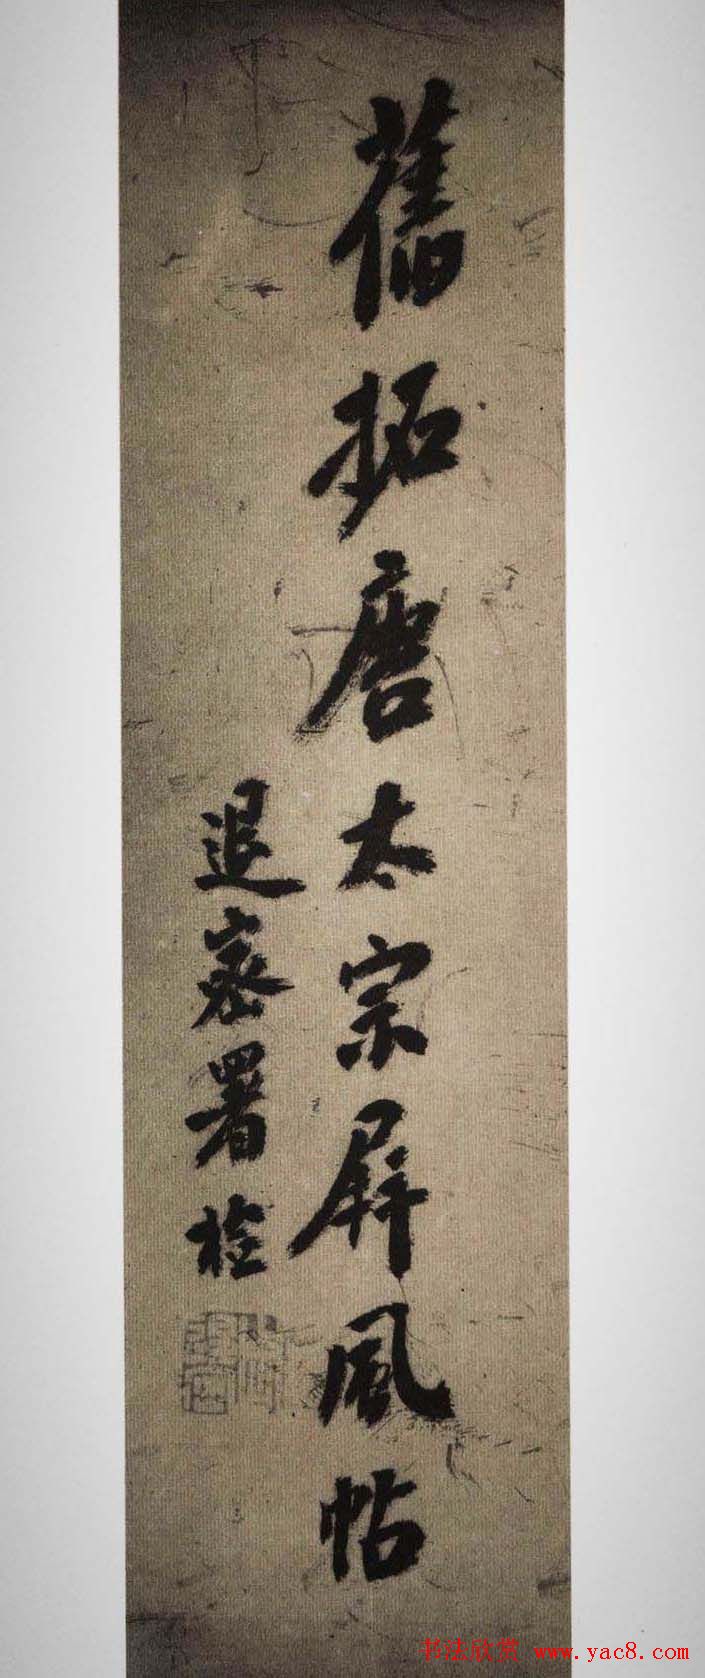 舊拓唐太宗屏風帖
退密署檢
书法欣赏 www.yac8.com